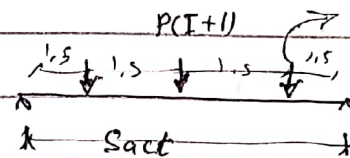 P(I+1)
1,5 1,5 1,5 1,5
Sact